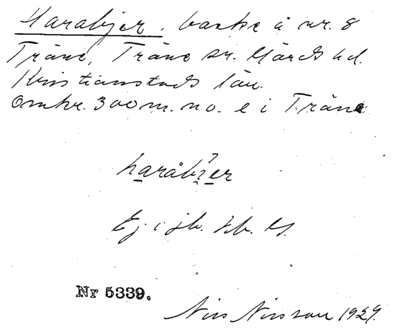 Harabjer, backe å nr. 8
Träne, Träne sn. Gärds hd.
Kristianstads län.
Omkr. 300 m. no. e i Träne
haråbjer
Ej i jb. tb. ks.
Nr 5339.
Nils Nilsson 1929.